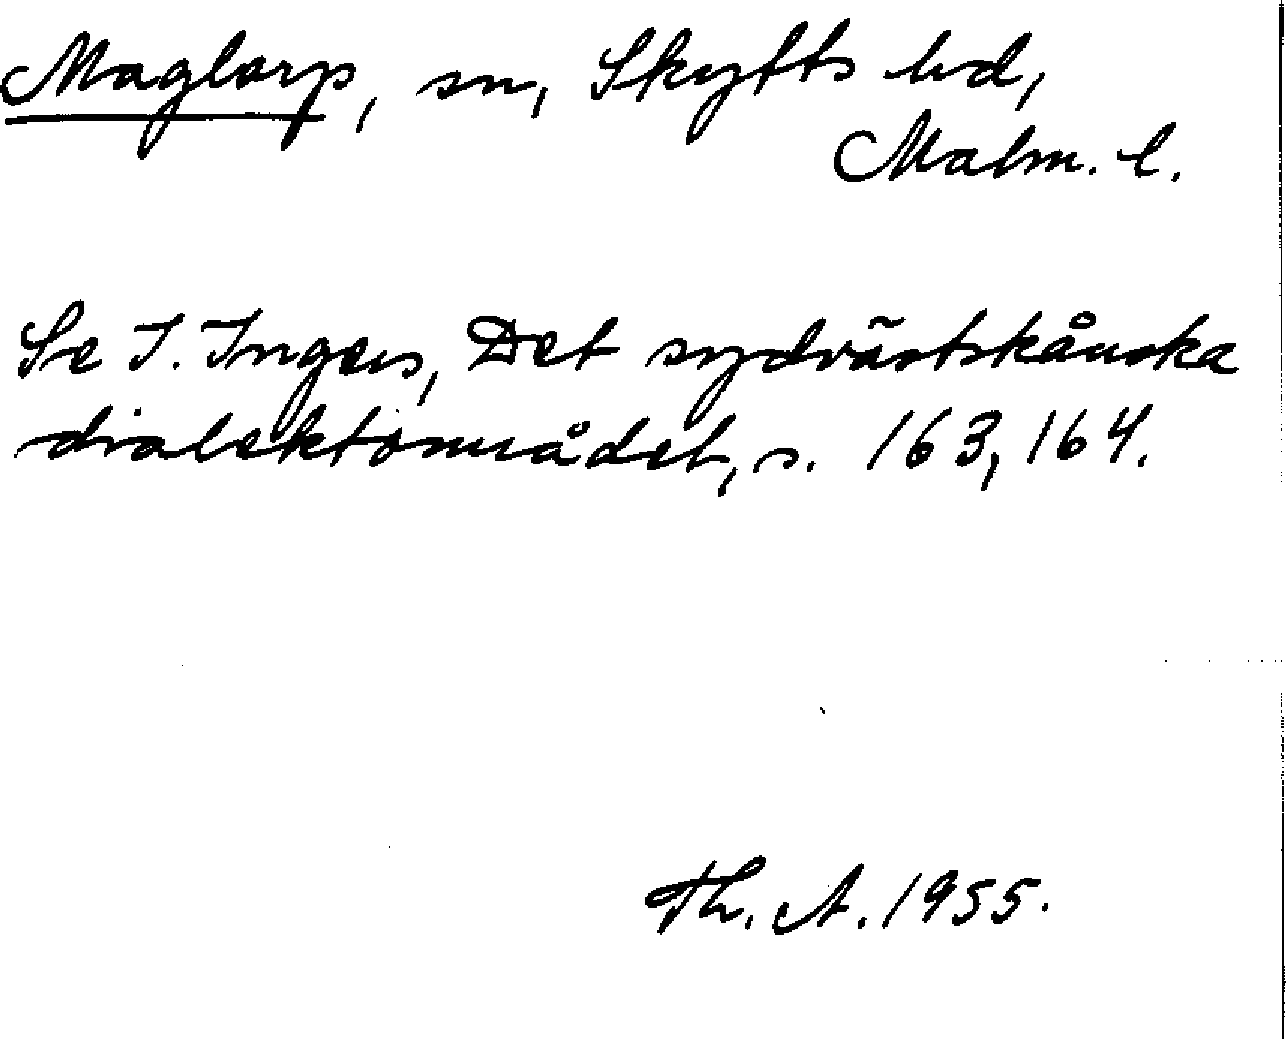 Maglarp, sn, Skytts hd,
Malm. l.
Se I. Ingers, Det sydvästskånska
dialektområdet, s. 163, 164.
Th. A. 1955.